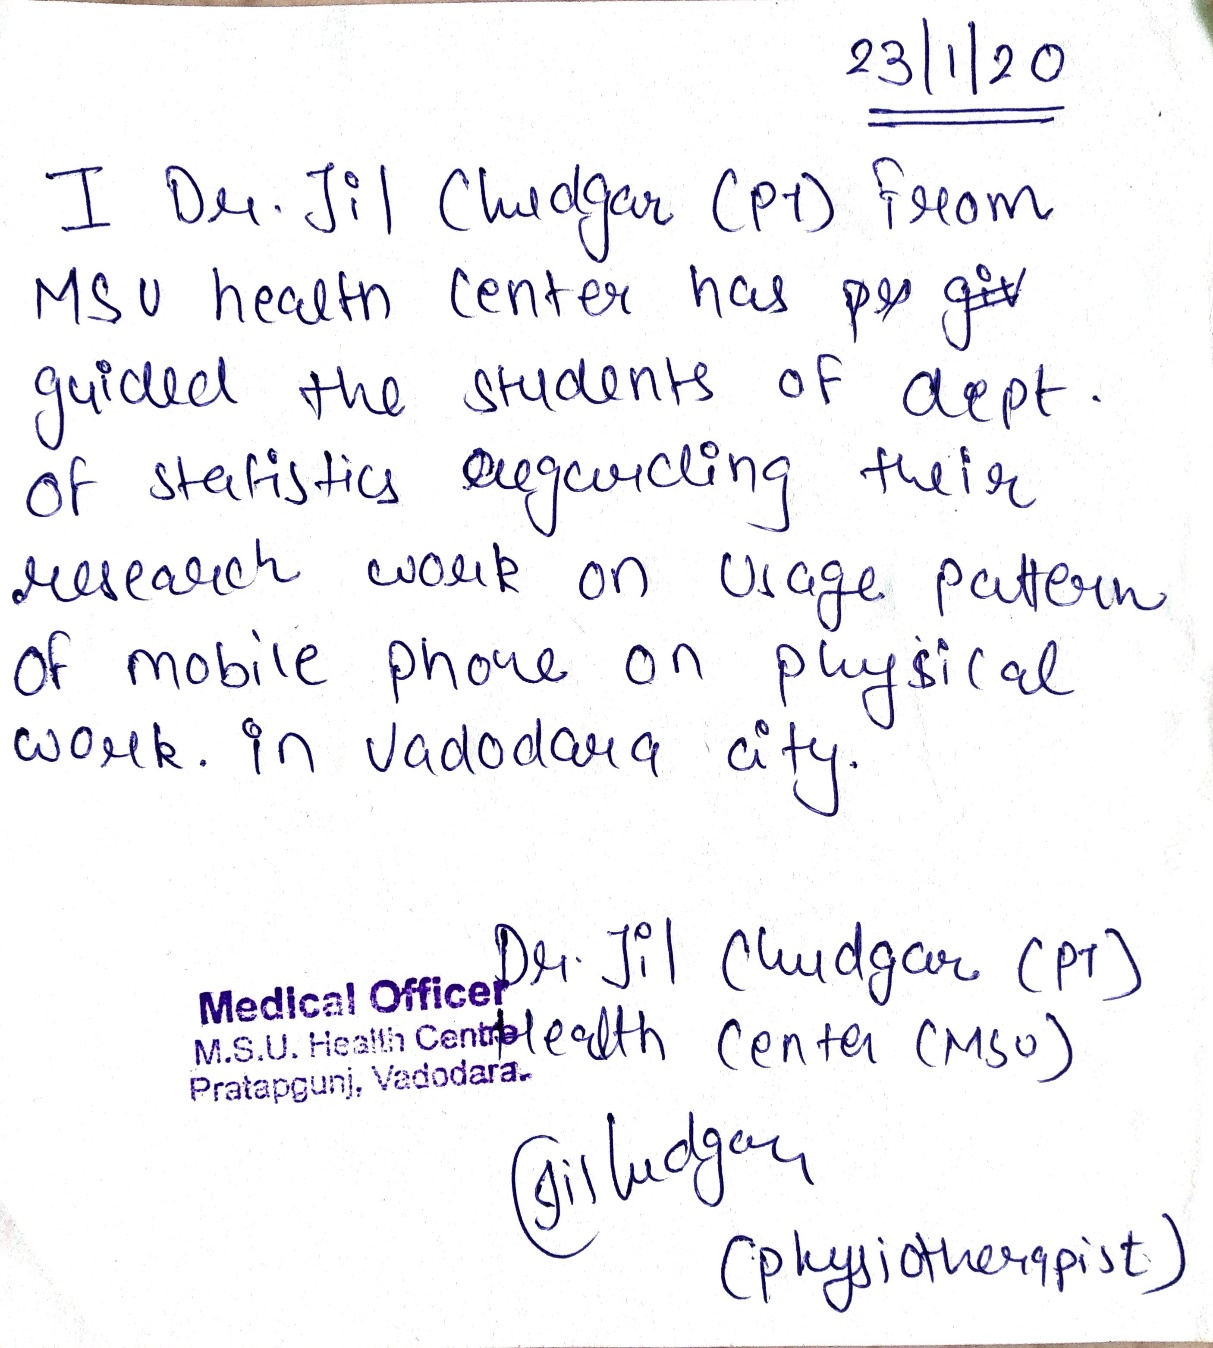 23/1/20
I Dr. Jil Chudgar (PT) from
MSU health center has
guided the students of dept.
of statistics regarding their
research work on Usage pattern
of mobile phone on physical
work. in vadodara city.
Dr. Jil Chudgar (PT)
Medical Officer
Health Center (MSU)
M.S.U. Health Centre
Pratapgunj, Vadodara.
Jil Chudgar
(physiotherapist)